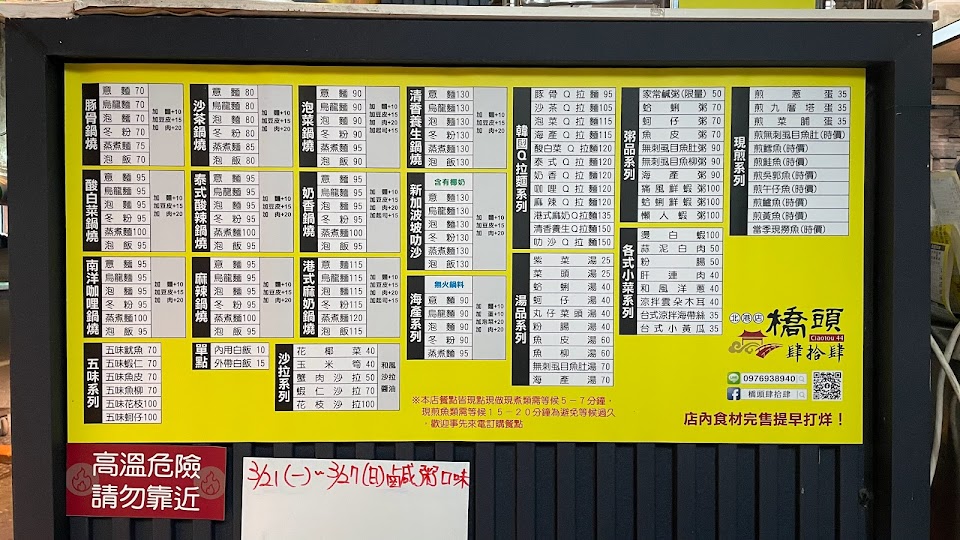 豚骨鍋燒
意麵 70
烏龍麵 70
泡麵 70
冬粉 70
蒸煮麵 75
泡飯 75
加麵+10
加豆皮+15
加肉+20
沙茶鍋燒
意麵 80
烏龍麵 80
泡麵 80
冬粉 80
蒸煮麵 85
泡飯 85
加麵+10
加豆皮+15
加肉+20
泡菜鍋燒
意麵 90
烏龍麵 90
泡麵 90
冬粉 90
蒸煮麵 95
泡飯 95
加麵+10
加豆皮+15
加肉+20
清香養生鍋燒
意麵130
烏龍麵130
泡麵130
冬粉130
蒸煮麵130
泡飯130
加麵+10
加豆皮+15
加肉+20
酸白菜鍋燒
意麵 95
烏龍麵 95
泡麵 95
冬粉 95
蒸煮麵100
泡飯 95
加麵+10
加豆皮+15
加肉+20
泰式酸辣鍋燒
意麵 95
烏龍麵 95
泡麵 95
冬粉 95
蒸煮麵100
泡飯 95
加麵+10
加豆皮+15
加肉+20
奶香鍋燒
意麵 95
烏龍麵 95
泡麵 95
冬粉 95
蒸煮麵100
泡飯 95
加麵+10
加肉+20
加起司+15
新加坡叻沙
含有椰奶
意麵130
烏龍麵130
泡麵130
冬粉130
蒸煮麵130
泡飯130
加麵+10
加豆皮+15
加肉+20
南洋咖哩鍋燒
意麵 95
烏龍麵 95
泡麵 95
冬粉 95
蒸煮麵100
泡飯 95
加麵+10
加豆皮+15
加肉+20
麻辣鍋燒
意麵 95
烏龍麵 95
泡麵 95
冬粉 95
蒸煮麵100
泡飯 95
加麵+10
加豆皮+15
加肉+20
港式麻奶鍋燒
意麵115
烏龍麵115
泡麵115
冬粉115
蒸煮麵120
泡飯115
加麵+10
加肉+20
加起司+15
海產系列
無火鍋料
意麵 90
烏龍麵 90
泡麵 90
冬粉 90
蒸煮麵 95
加麵+10
加蛋+10
加泡菜+20
加肉+20
五味系列
五味魷魚 70
五味蝦仁 70
五味魚皮 70
五味魚柳 70
五味花枝100
五味蚵仔100
單點
內用白飯 10
外帶白飯 15
沙拉系列
花椰菜 40
玉米筍 40
蟹肉沙拉 50
蝦仁沙拉 70
花枝沙拉100
和風
沙拉
醬油
韓國Q拉麵系列
豚骨Q拉麵 95
沙茶Q拉麵105
泡菜Q拉麵110
海產Q拉麵115
酸白菜Q拉麵120
泰式Q拉麵120
奶香Q拉麵120
咖哩Q拉麵120
麻辣Q拉麵120
港式麻奶Q拉麵135
清香養生Q拉麵150
叻沙Q拉麵150
湯品系列
紫菜湯 25
菜頭湯 25
蛤蜊湯 40
蚵仔湯 40
丸仔菜頭湯 40
粉腸湯 40
魚皮湯 60
魚柳湯 60
無刺虱目魚肚湯 70
海產湯 70
粥品系列
家常鹹粥(限量) 50
蛤蜊粥 70
蚵仔粥 70
魚皮粥 70
無刺虱目魚肚粥 90
無刺虱目魚柳粥 90
海產粥 90
痛風鮮蝦粥100
蛤蜊鮮蝦粥100
懶人蝦粥100
各式小菜系列
燙白蝦100
蒜泥白肉 50
粉腸 50
肝連肉 50
和風洋蔥 40
涼拌雲朵木耳 40
台式涼拌海帶絲 35
台式小黃瓜 35
現煎系列
煎蔥蛋 35
煎九層塔蛋 35
煎菜脯蛋 35
煎無刺虱目魚肚(時價)
煎鱈魚(時價)
煎鮭魚(時價)
煎吳郭魚(時價)
煎午仔魚(時價)
煎鱸魚(時價)
煎黃魚(時價)
當季現撈魚(時價)
※本店餐點皆現點現做現煮類需等候5-7分鐘，
現煎魚類需等候15-20分鐘為避免等候過久
，歡迎事先來電訂購餐點
北港店
橋頭
Ciaotou 44
肆拾肆
0976938940
橋頭肆拾肆
店內食材完售提早打烊！
高溫危險
請勿靠近
3/21(一)～3/27(日)鹹粥口味